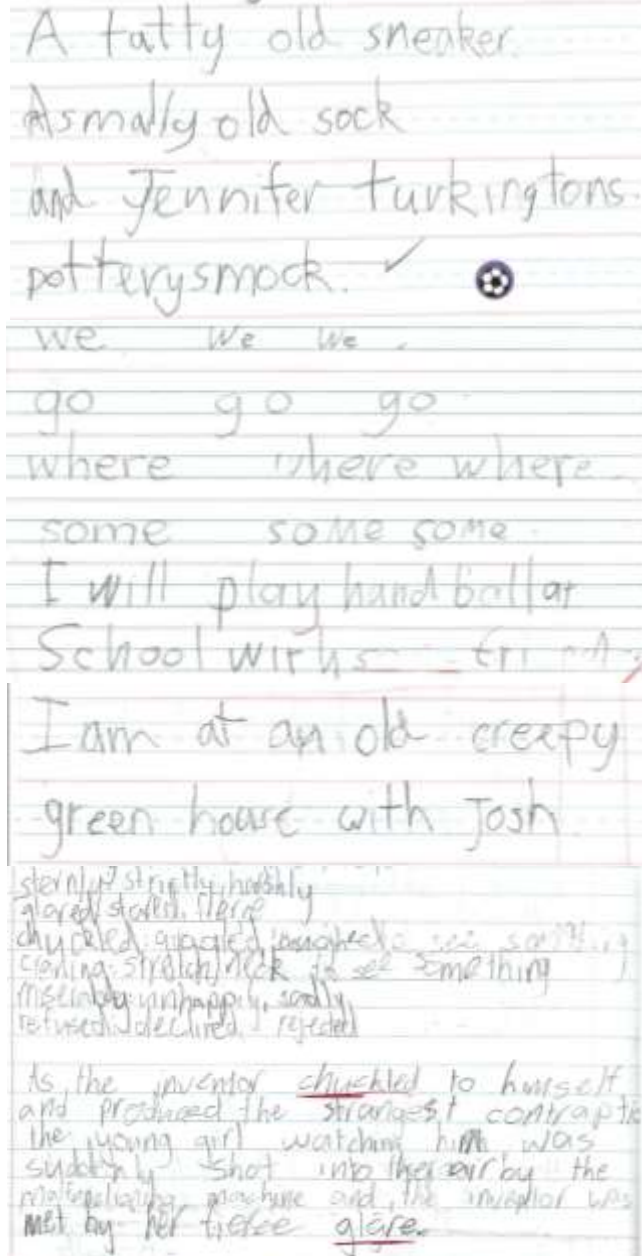 A tatty old sneaker.
A smally old sock
and Jennifer turkingtons
pottery smock.
we we we.
go go go
where where where
some some some
I will play hand ball at
School with
I am at an old creepy
green house with Josh
sternly: strictly, harshly
glared: stared, fierce
chuckled: giggled, to see something
craning: stretch neck to see something
miserably: unhappily, sadly
refused: declined, rejected
As the inventor chuckled to himself
and produced the strangest
the young girl watching him was
suddnly shot into the air by the
malfunctioning machine and the inventor was
met by her fierce glare.